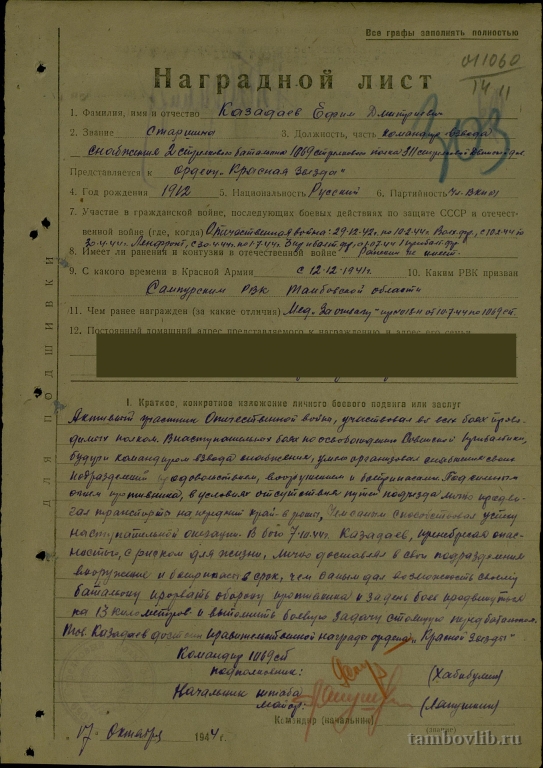 Все графы заполнять полностью
011060
14 11
Наградной лист
303
1. Фамилия, имя и отчество Казадаев Ефим Дмитриевич
2. Звание Старшина 3. Должность, часть командир взвода
снабжения 2 стрелкового батальона 1069 стрелкового полка 311 стрелковой
Представляется к ордену „Красная Звезда"
4. Год рождения 1912 5. Национальность Русский 6. Партийность Чл. ВКП(б)
7. Участие в гражданской войне, последующих боевых действиях по защите СССР и отечест-
венной войне (где, когда) Отечественная война: 29.12.42. по 10.2.44. Волх. фр., с 10.2.44 по
30.4.44. Ленфронт, с 30.4.44 по 1.7.44. 3 прибалт. фр., 1 прибалт. фр.
8. Имеет ли ранения и контузии в отечественной войне Ранений не имеет.
9. С какого времени в Красной Армии с 12.12.1941г. 10. Каким РВК призван
Сампурским РВК Тамбовской области
11. Чем ранее награжден (за какие отличия) Мед. „За отвагу" от 10.7.44 по 1069 сп.
12. Постоянный домашний адрес представляемого к награждению и адрес его семьи
ДЛЯ ПОДШИВКИ
I. Краткое, конкретное изложение личного боевого подвига или заслуг
Активный участник Отечественной войны, участвовал во всех боях прово-
димых полком. В наступательных боях по освобождению Советской Прибалтики,
будучи командиром взвода снабжения, умело организовал снабжение своих
подразделений продовольствием, вооружением и боеприпасами. Под сильным
огнем противника, в условиях отсутствия путей подъезда лично продви-
гал транспорты на передний край в роты, чем самым способствовал успеху
наступательной операции. В бою 7.10.44г. Казадаев, пренебрегая опас-
ностью, с риском для жизни, лично доставлял в свои подразделения
вооружение и боеприпасы в срок, чем самым дал возможность своему
батальону прорвать оборону противника и за день боя продвинуться
на 13 километров и выполнить боевую задачу стоящую перед батальоном.
Тов. Казадаев достоин правительственной награды ордена „Красной Звезды"
Командир 1069 сп
подполковник: (Хабибулин)
Начальник штаба
майор: (Лапушкин)
Командир (начальник)
(звание)
17 Октября 1944 г.
tambovlib.ru